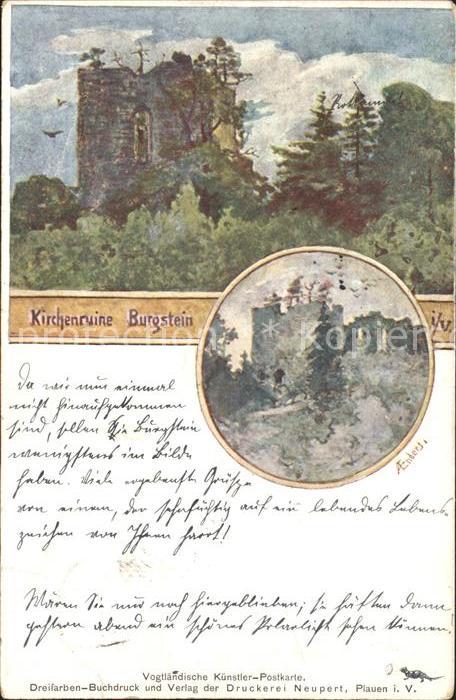 Kirchenruine Burgstein i/V.
AEnders.
Da wir nun einmal
nicht hinaufgekommen
sind, sollen Sie Burgstein
wenigstens im Bilde
haben. Viele ergebenste Grüße
von einem, der sehnsüchtig auf ein lebendes Lebens-
zeichen von Ihnen harrt!
Wären Sie nur noch hiergeblieben; sie hätten dann
gestern abend ein schönes Polarlicht sehen können!
Vogtländische Künstler-Postkarte.
Dreifarben-Buchdruck und Verlag der Druckerei Neupert, Plauen i. V.